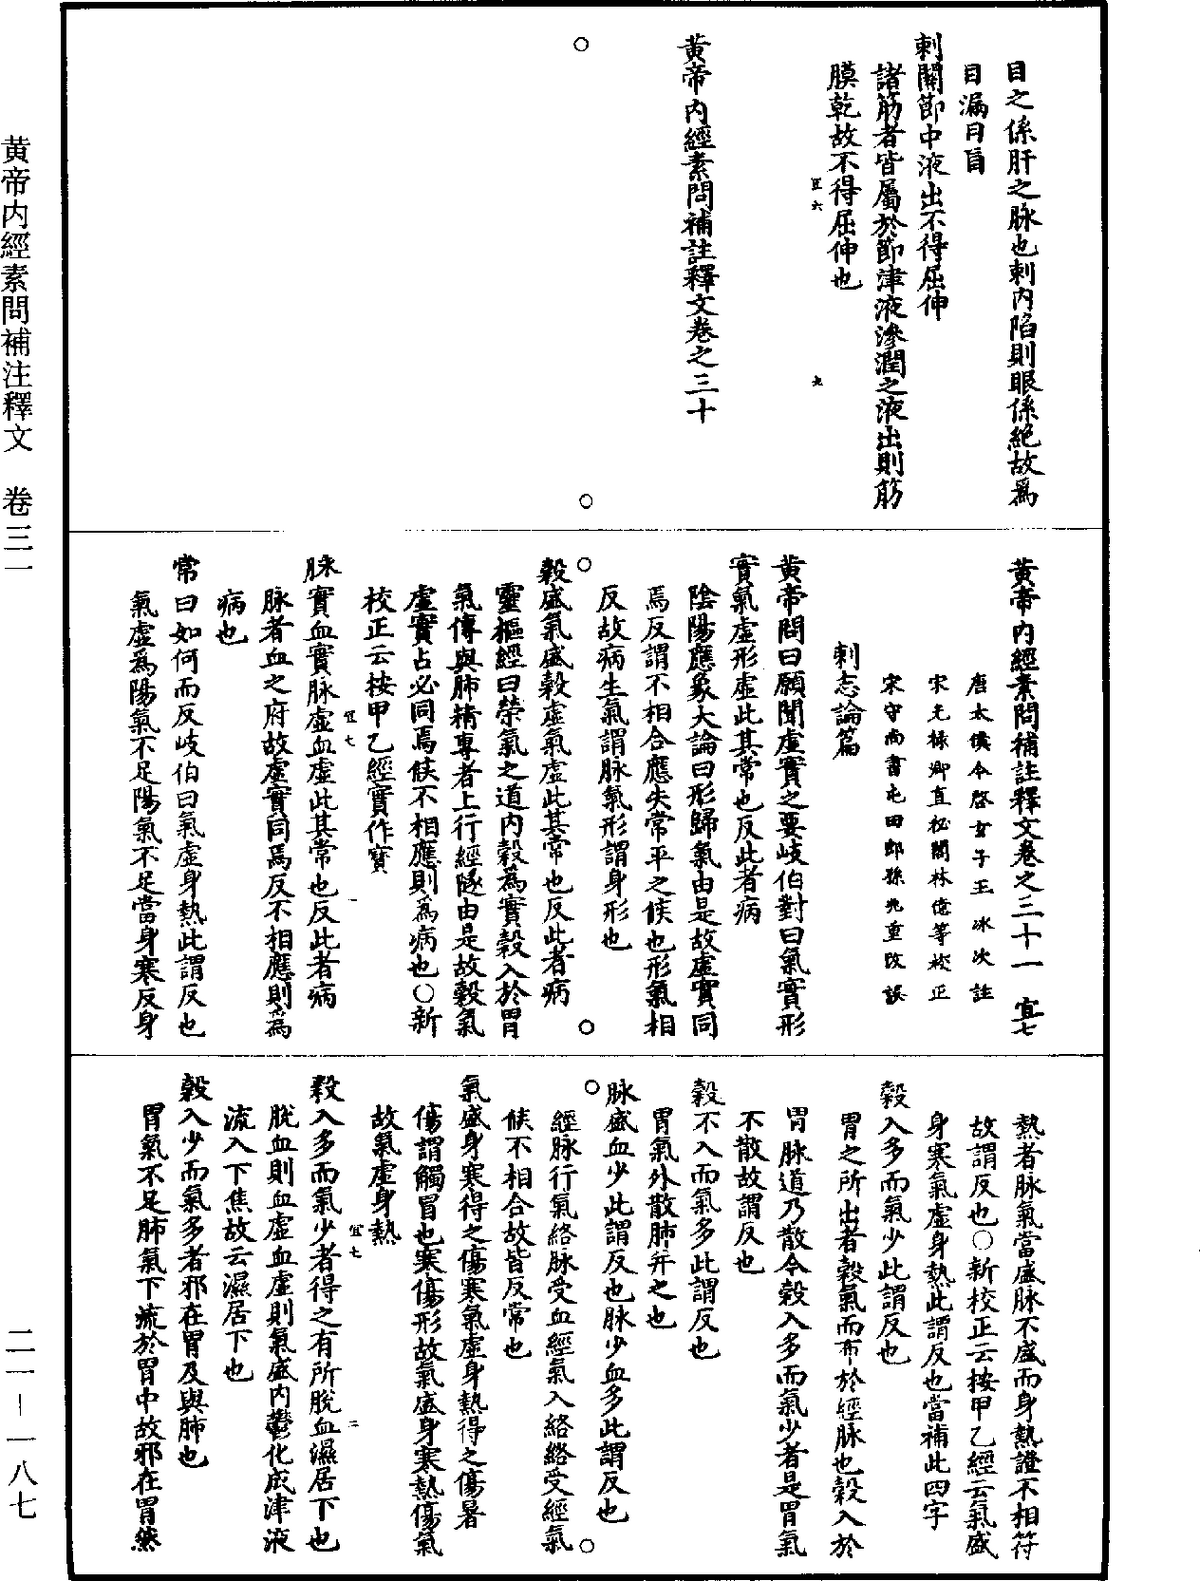 目之係肝之脉也刺内陷則眼係絶故爲
目漏目盲
刺關節中液出不得屈伸
諸筋者皆屬於節津液滲潤之液出則筋
膜乾故不得屈伸也
宜六
九
黄帝内經素問補註釋文卷之三十
黄帝内經素問補註釋文卷之三十一 宜七
唐太僕令啓玄子王冰次註
宋光祿卿直祕閣林億等校正
宋守尚書屯田郎孫兆重改誤
刺志論篇
黄帝問曰願聞虛實之要岐伯對曰氣實形
實氣虛形虛此其常也反此者病
陰陽應象大論曰形歸氣由是故虛實同
焉反謂不相合應失常平之候也形氣相
反故病生氣謂脉氣形謂身形也
穀盛氣盛穀虛氣虛此其常也反此者病
靈樞經曰榮氣之道内穀為實穀入於胃
氣傳與肺精專者上行經隧由是故穀氣
虛實占必同焉候不相應則為病也○新
校正云按甲乙經實作寳
宜七
一
脉實血實脉虛血虛此其常也反此者病
脉者血之府故虛實同焉反不相應則為
病也
常曰如何而反岐伯曰氣虛身熱此謂反也
氣虛爲陽氣不足陽氣不足當身寒反身
熱者脉氣當盛脉不盛而身熱證不相符
故謂反也○新校正云按甲乙經云氣盛
身寒氣虛身熱此謂反也當補此四字
穀入多而氣少此謂反也
胃之所出者穀氣而布於經脉也穀入於
胃脉道乃散令穀入多而氣少者是胃氣
不散故謂反也
穀不入而氣多此謂反也
胃氣外散肺并之也
脉盛血少此謂反也脉少血多此謂反也
經脉行氣絡脉受血經氣入絡絡受經氣
候不相合故皆反常也
氣盛身寒得之傷寒氣虛身熱得之傷暑
傷謂觸冒也寒傷形故氣盛身寒熱傷氣
故氣虛身熱
宜七
二
穀入多而氣少者得之有所脫血濕居下也
脫血則血虛血虛則氣盛内鬱化成津液
流入下焦故云濕居下也
穀入少而氣多者邪在胃及與肺也
胃氣不足肺氣下流於胃中故邪在胃然
黄帝内經素問補注釋文 卷三一
二一–一八七